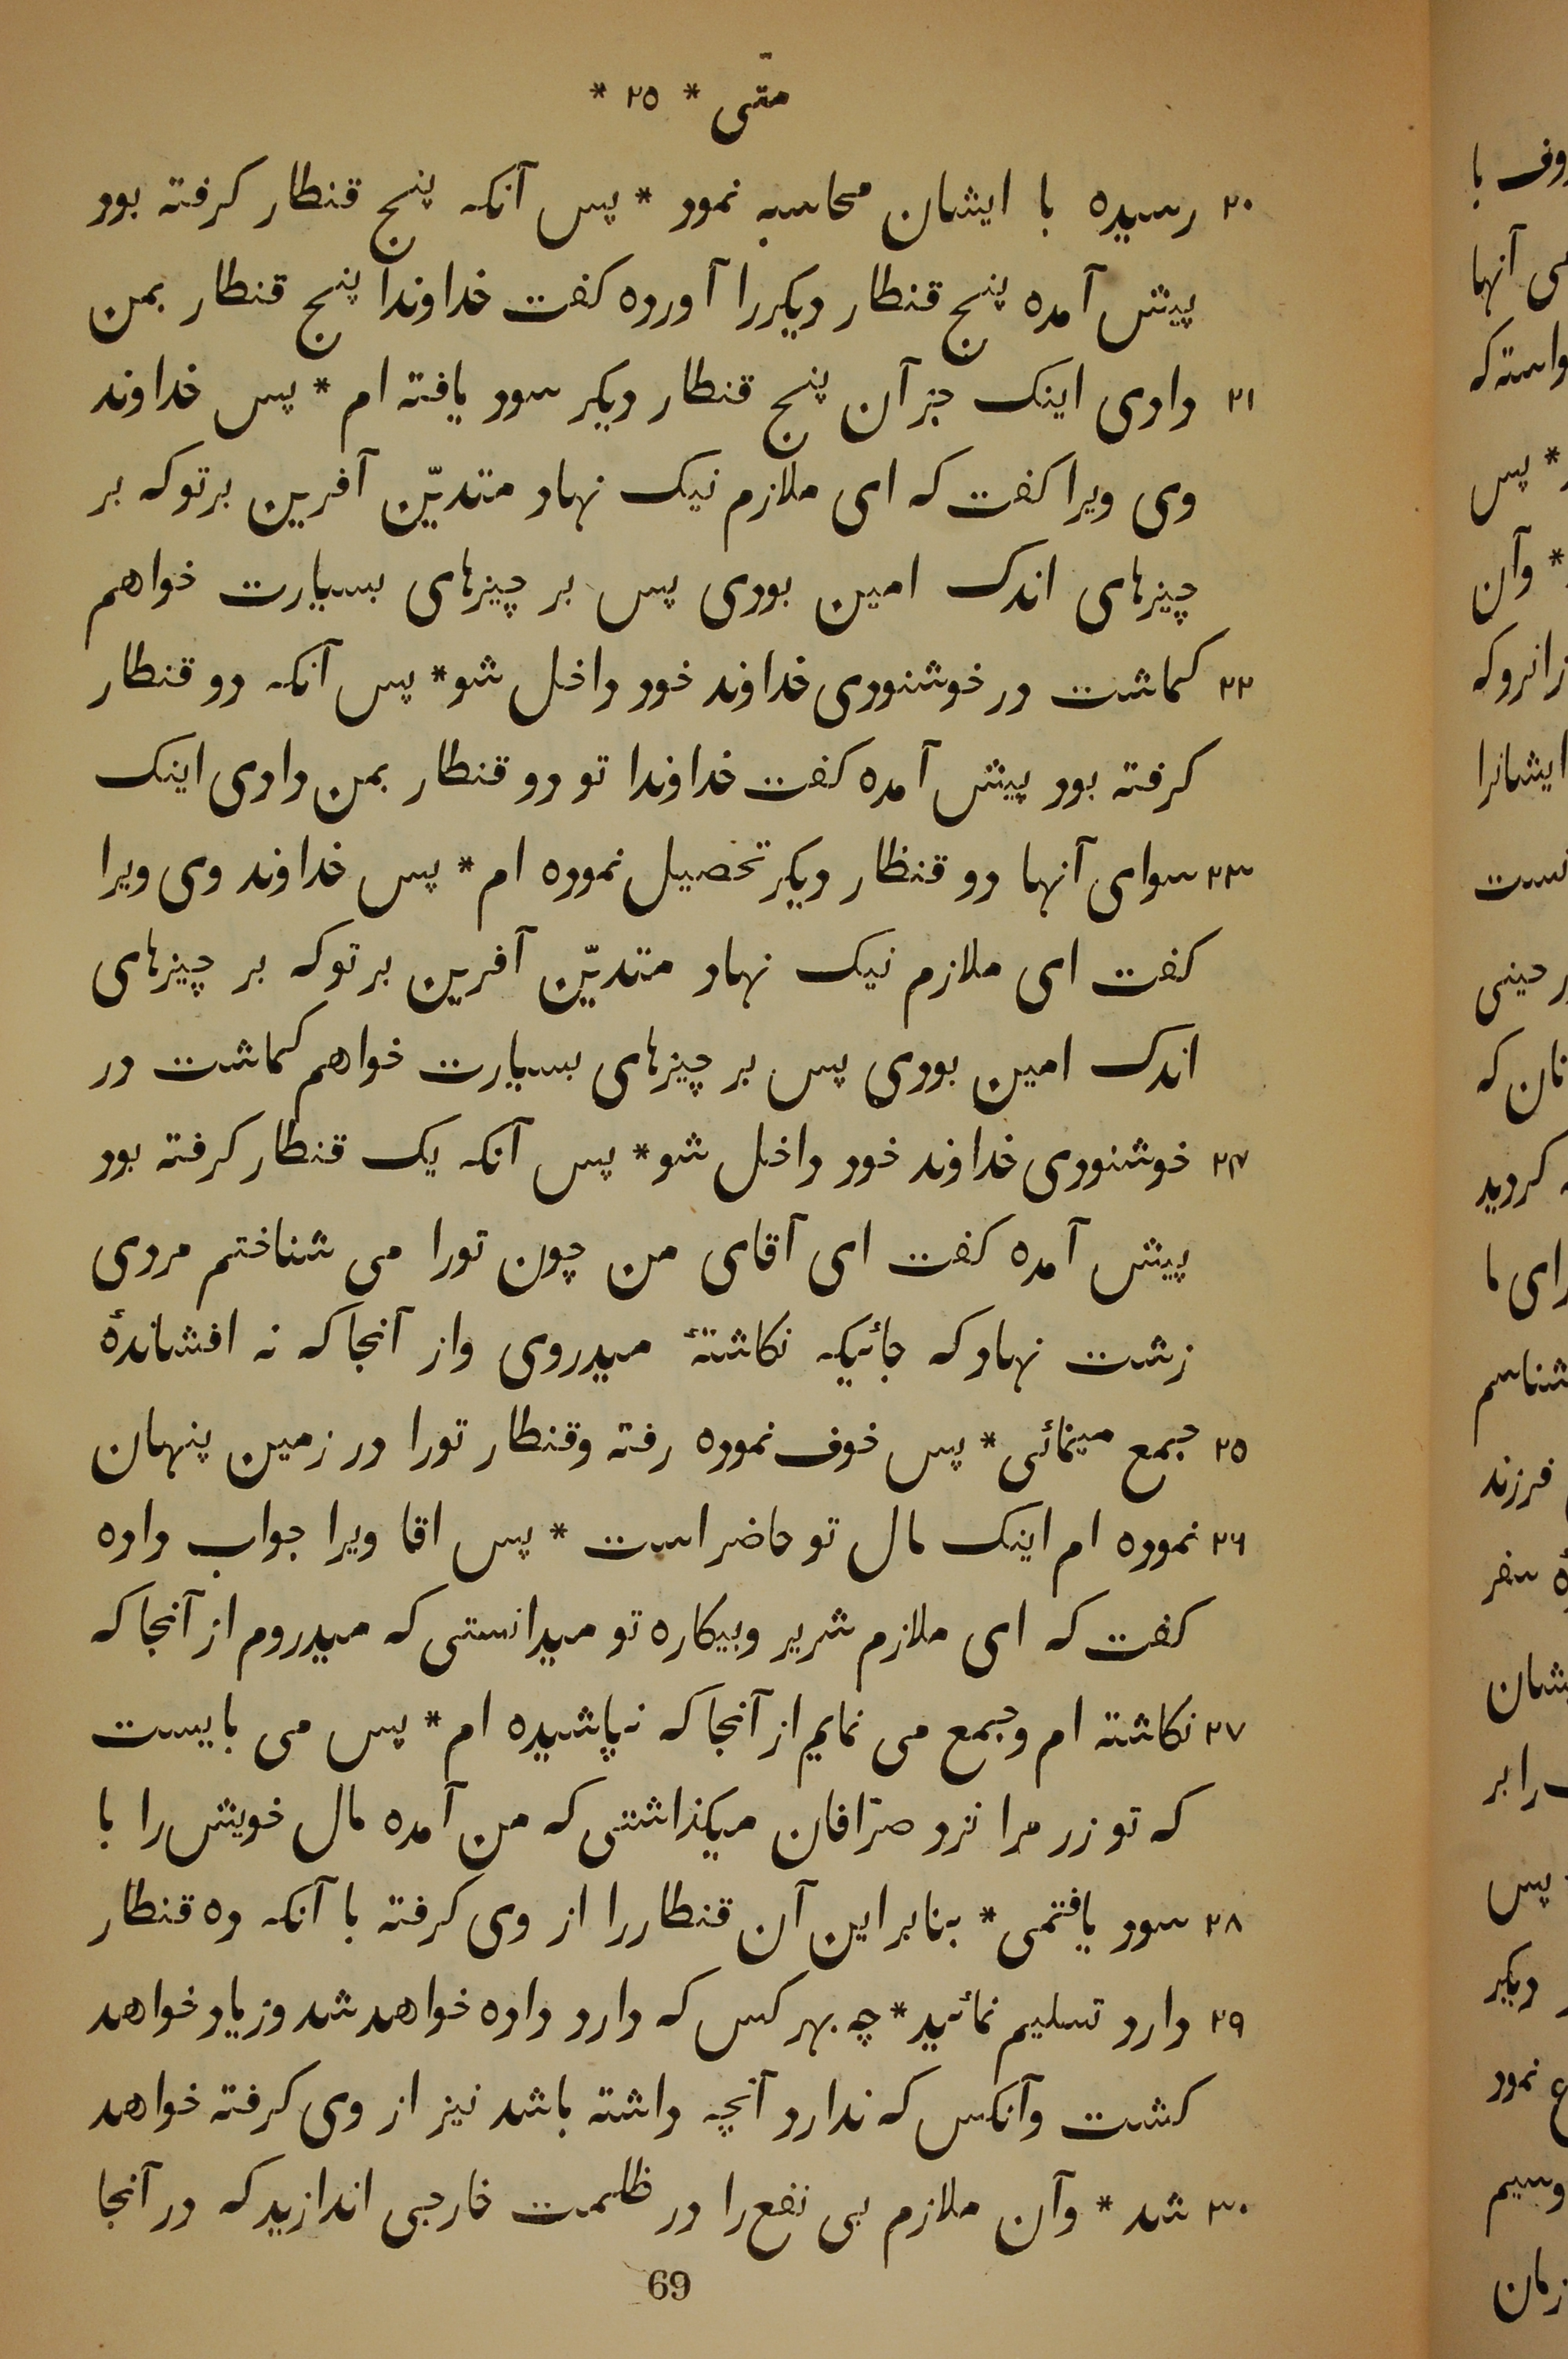 متّی * ۲۵ *
۲۰ رسیده با ایشان محاسبه نمود * پس آنکه پنج قنطار کرفته بود
پیش آمده پنج قنطار دیکررا آورده کفت خداوندا پنج قنطار بمن
۲۱ دادی اینک جز آن پنج قنطار دیکر سود یافته ام * پس خداوند
وی ویرا کفت که ای ملازم نیک نهاد متدیّن آفرین برتو که بر
چیزهای اندک امین بودی پس بر چیزهای بسیارت خواهم
۲۲ کماشت در خوشنودی خداوند خود داخل شو * پس آنکه دو قنطار
کرفته بود پیش آمده کفت خداوندا تو دو قنطار بمن دادی اینک
۲۳ سوای آنها دو قنطار دیکر تحصیل نموده ام * پس خداوند وی ویرا
کفت ای ملازم نیک نهاد متدیّن آفرین بر تو که بر چیزهای
اندک امین بودی پس بر چیزهای بسیارت خواهم کماشت در
۲۴ خوشنودی خداوند خود داخل شو * پس آنکه یک قنطار کرفته بود
پیش آمده کفت ای آقای من چون تورا می شناختم مردی
زشت نهاد که جائیکه نکاشتهٔ میدروی واز آنجا که نه افشاندهٔ
۲۵ جمع مینمائی * پس خوف نموده رفته وقنطار تورا در زمین پنهان
۲۶ نموده ام اینک مال تو حاضر است * پس اقا ویرا جواب داده
کفت که ای ملازم شریر وبیکاره تو میدانستی که میدروم از آنجا که
۲۷ نکاشته ام وجمع می نمایم از آنجا که نه پاشیده ام * پس می بایست
که تو زر مرا نزد صرّافان میکذاشتی که من آمده مال خویش را با
۲۸ سود یافتمی * بنابر این آن قنطاررا از وی کرفته با آنکه ده قنطار
۲۹ دارد تسلیم نمائید * چه بهر کس که دارد داده خواهد شد وزیاد خواهد
کشت وآنکس که ندارد آنچه داشته باشد نیز از وی کرفته خواهد
۳۰ شد * وآن ملازم بی نفع را در ظلمت خارجی اندازید که در آنجا
69